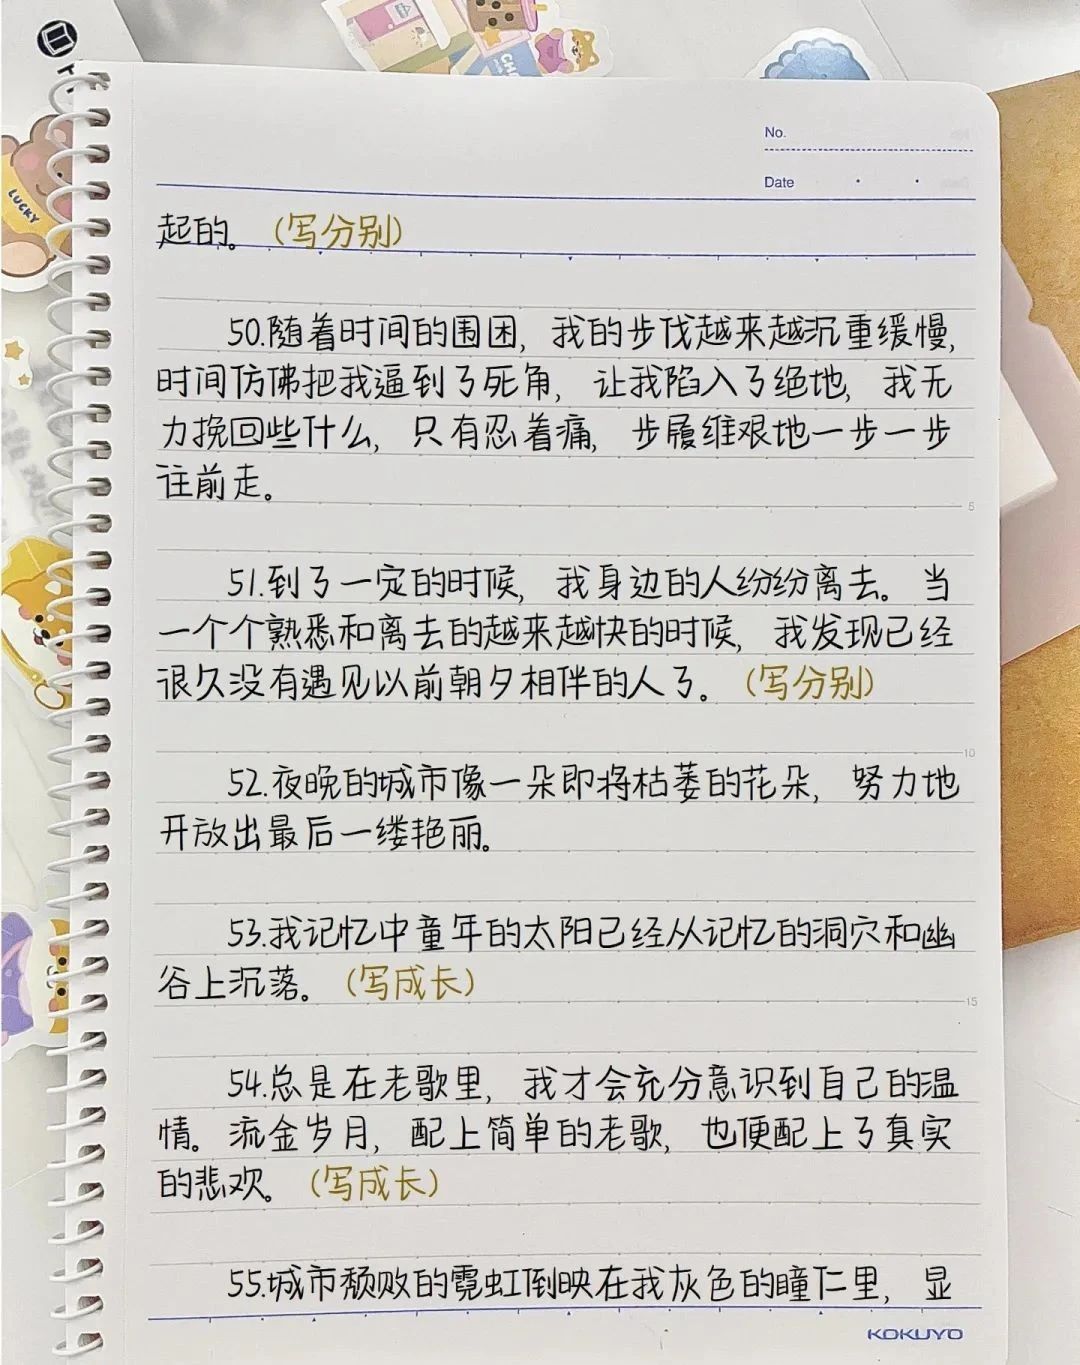 No.
Date
起的。(写分别)
50.随着时间的围困,我的步伐越来越沉重缓慢,
时间仿佛把我逼到了死角,让我陷入了绝地,我无
力挽回些什么,只有忍着痛,步履维艰地一步一步
往前走。
5
51.到了一定的时候,我身边的人纷纷离去。当
一个个熟悉和离去的越来越快的时候,我发现已经
很久没有遇见以前朝夕相伴的人了。(写分别)
10
52.夜晚的城市像一朵即将枯萎的花朵,努力地
开放出最后一缕艳丽。
53.我记忆中童年的太阳已经从记忆的洞穴和幽
谷上沉落。(写成长)
15
54.总是在老歌里,我才会充分意识到自己的温
情。流金岁月,配上简单的老歌,也便配上了真实
的悲欢。(写成长)
55.城市颓败的霓虹倒映在我灰色的瞳仁里,显
KOKUYO
LUCKY